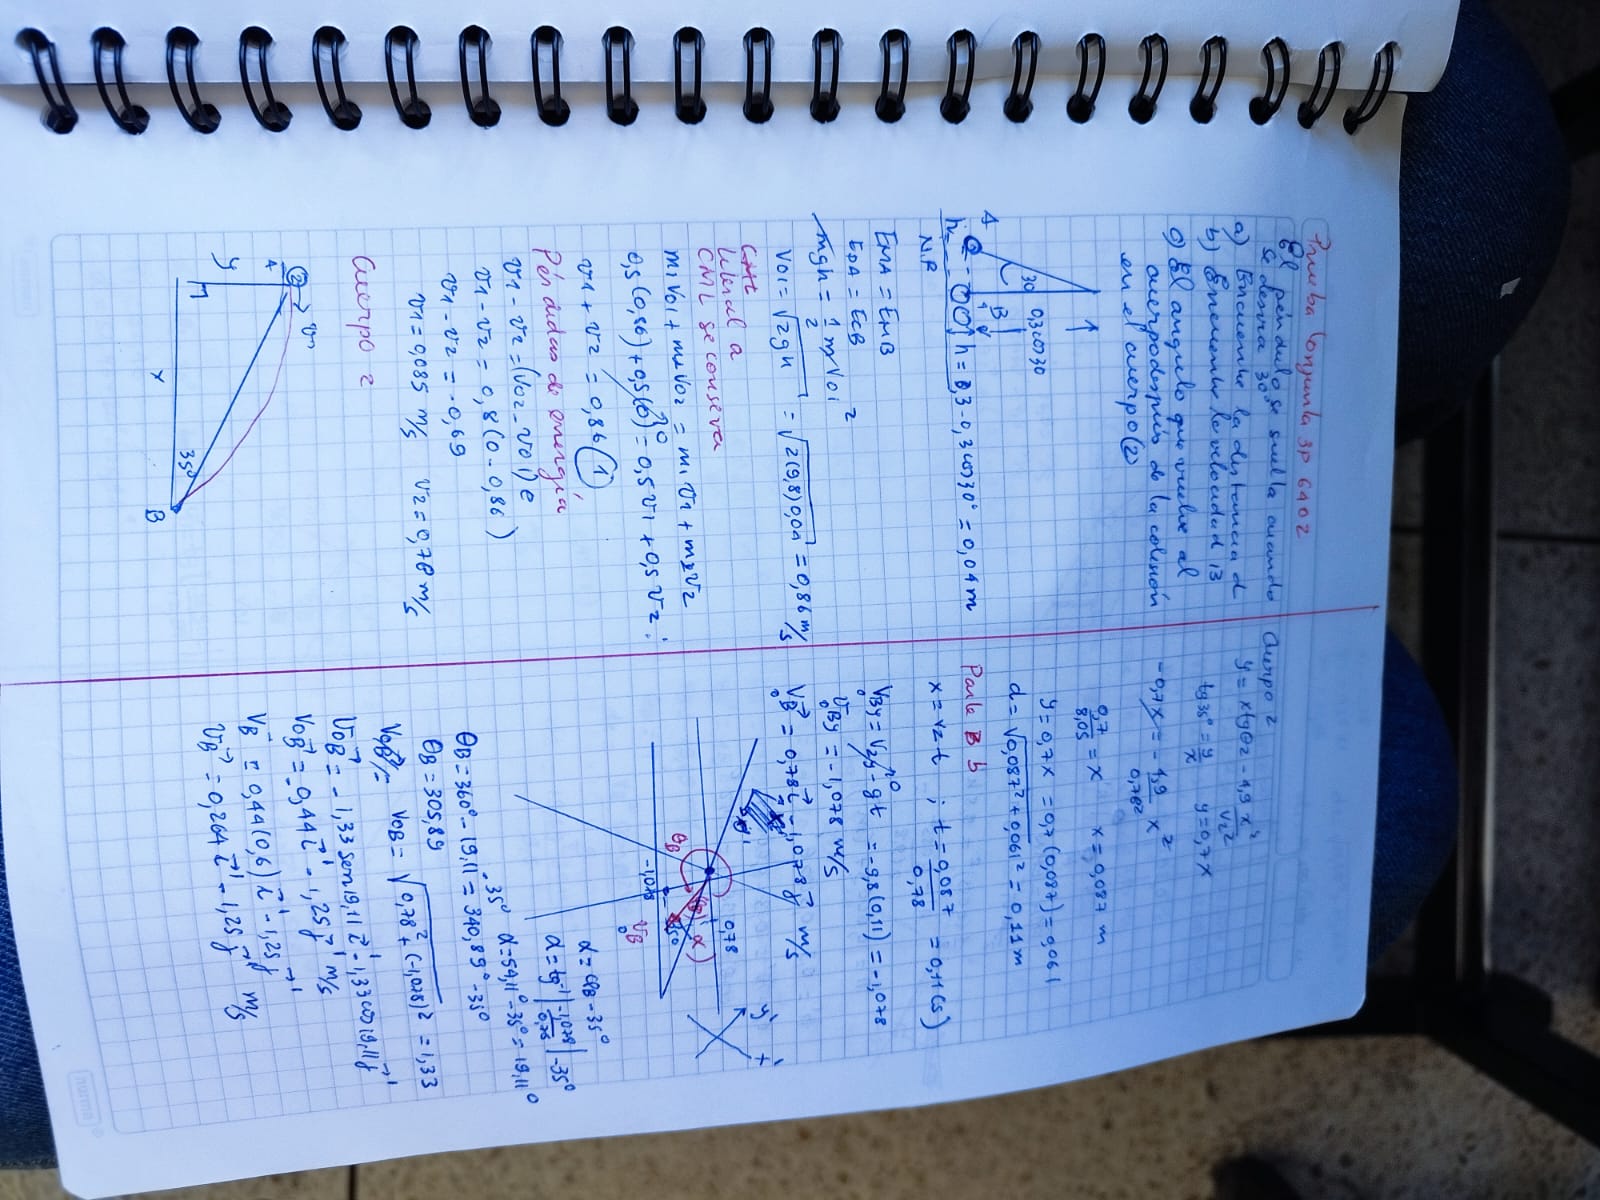 Prueba Conjunta 3P 6402
El péndulo se suelta cuando
se desvia 30°
a) Encuentre la distancia d
b) Encuentre la velocidad B
c) El angulo que vuelve al
cuerpo después de la colisión
en el cuerpo (2)
30
0,3cos30
A
B
h
h = 0,3 - 0,3cos30° = 0,04 m
N.R
EMA = EMB
EPA = ECB
mgh = 1/2 m Vo1²
Vo1 = √2gh = √2(9,8)0,04 = 0,86 m/s
CML
literal a
CML se conserva
m1 Vo1 + m2 Vo2 = m1 V1 + m2 V2
0,5(0,86) + 0,5(0) = 0,5 V1 + 0,5 V2
0
V1 + V2 = 0,86 (1)
Pérdidas de energía
V1 - V2 = (Vo2 - Vo1) e
V1 - V2 = 0,8(0 - 0,86)
V1 - V2 = -0,69
V1 = 0,085 m/s V2 = 0,78 m/s
Cuerpo 2
2
A
y
35°
x
B
Cuerpo 2
y = xtgθ2 - 4,9 x²/V2²
tg35° = y/x y = 0,7x
-0,7x = - 4,9/0,78² x²
0,7/8,05 = x x = 0,087 m
y = 0,7x = 0,7(0,087) = 0,061
d = √0,087² + 0,061² = 0,11 m
Parte B b
x = V2 t ; t = 0,087/0,78 = 0,11(s)
VoBy = V2y - gt = -9,8(0,11) = -1,078
0
VoBy = -1,078 m/s
VoB = 0,78i - 1,078j m/s
y' x'
0,78
θB
α
35°
-1,078
VoB
α = φB - 35°
α = tg⁻¹ |-1,078/0,78| - 35°
α = 54,11° - 35° = 19,11°
θB = 360° - 19,11 - 35° = 340,89° - 35°
θB = 305,89
VoB = VoB = √0,78² + (-1,078)² = 1,33
VoB = - 1,33 sen19,11 i' - 1,33cos19,11 j'
VoB = -0,44 i' - 1,25 j' m/s
VB = 0,44(0,6) i' - 1,25 j'
VB = 0,264 i' - 1,25 j' m/s
norma